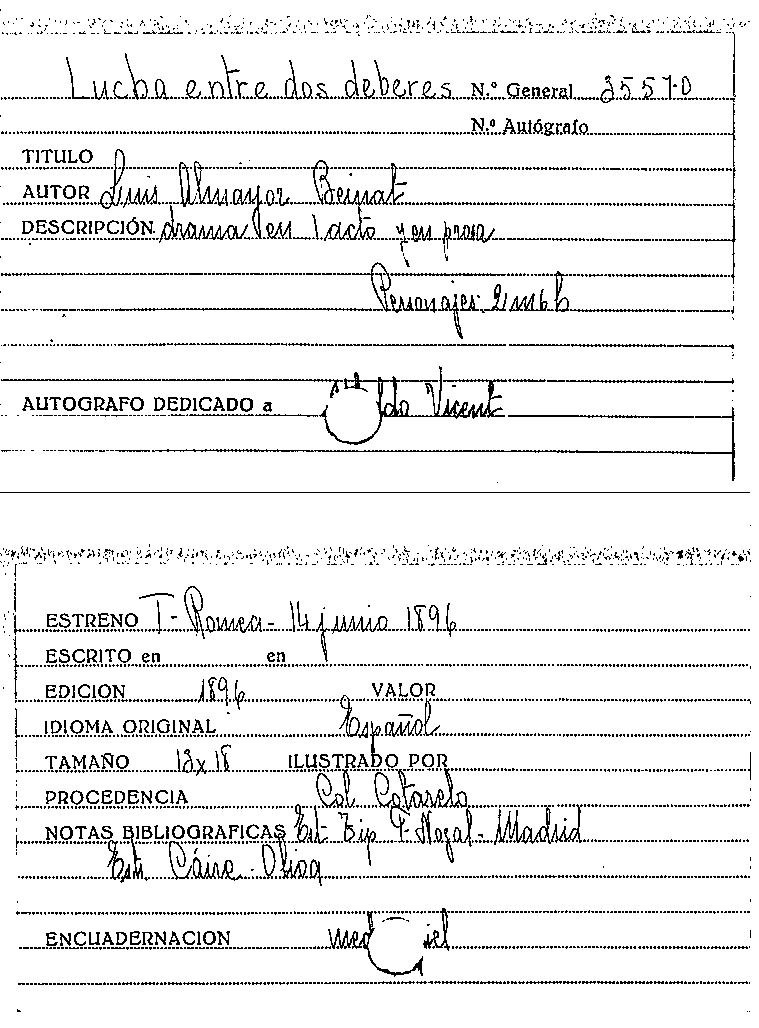 Lucha entre dos deberes N.º General 3557-D
N.º Autógrafo
TITULO
AUTOR Luis Almayor Beinat
DESCRIPCIÓN drama en 1 acto y en prosa
Personajes. 2 m 6 h
AUTOGRAFO DEDICADO a Vicent
ESTRENO T- Romea- 14 junio 1896
ESCRITO en en
EDICION 1896 VALOR
IDIOMA ORIGINAL Español
TAMAÑO 13x18 ILUSTRADO POR
PROCEDENCIA Col Cotarelo
NOTAS BIBLIOGRAFICAS Est- Tip F- Nozal- Madrid
Estr.
ENCUADERNACION med iel